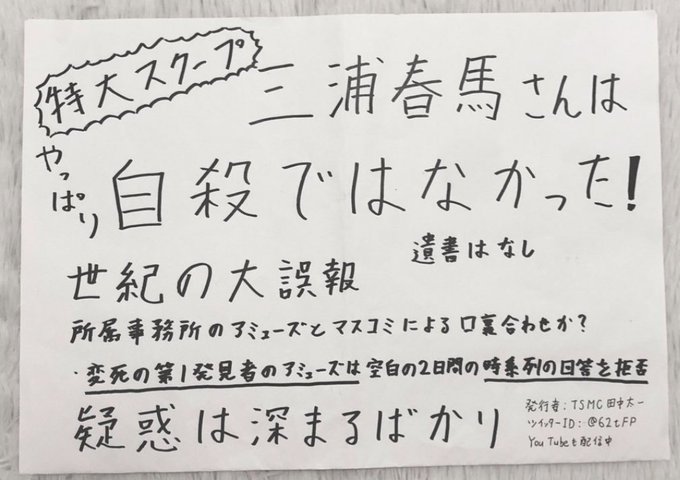 特大スクープ
三浦春馬さんは
やっぱり
自殺ではなかった!
遺書はなし
世紀の大誤報
所属事務所のアミューズとマスコミによる口裏合わせか?
・変死の第1発見者のアミューズは空白の2日間の時系列の回答を拒否
疑惑は深まるばかり
発行者:TSMC田中太一
ツイッターID:@62tFP
YouTubeも配信中